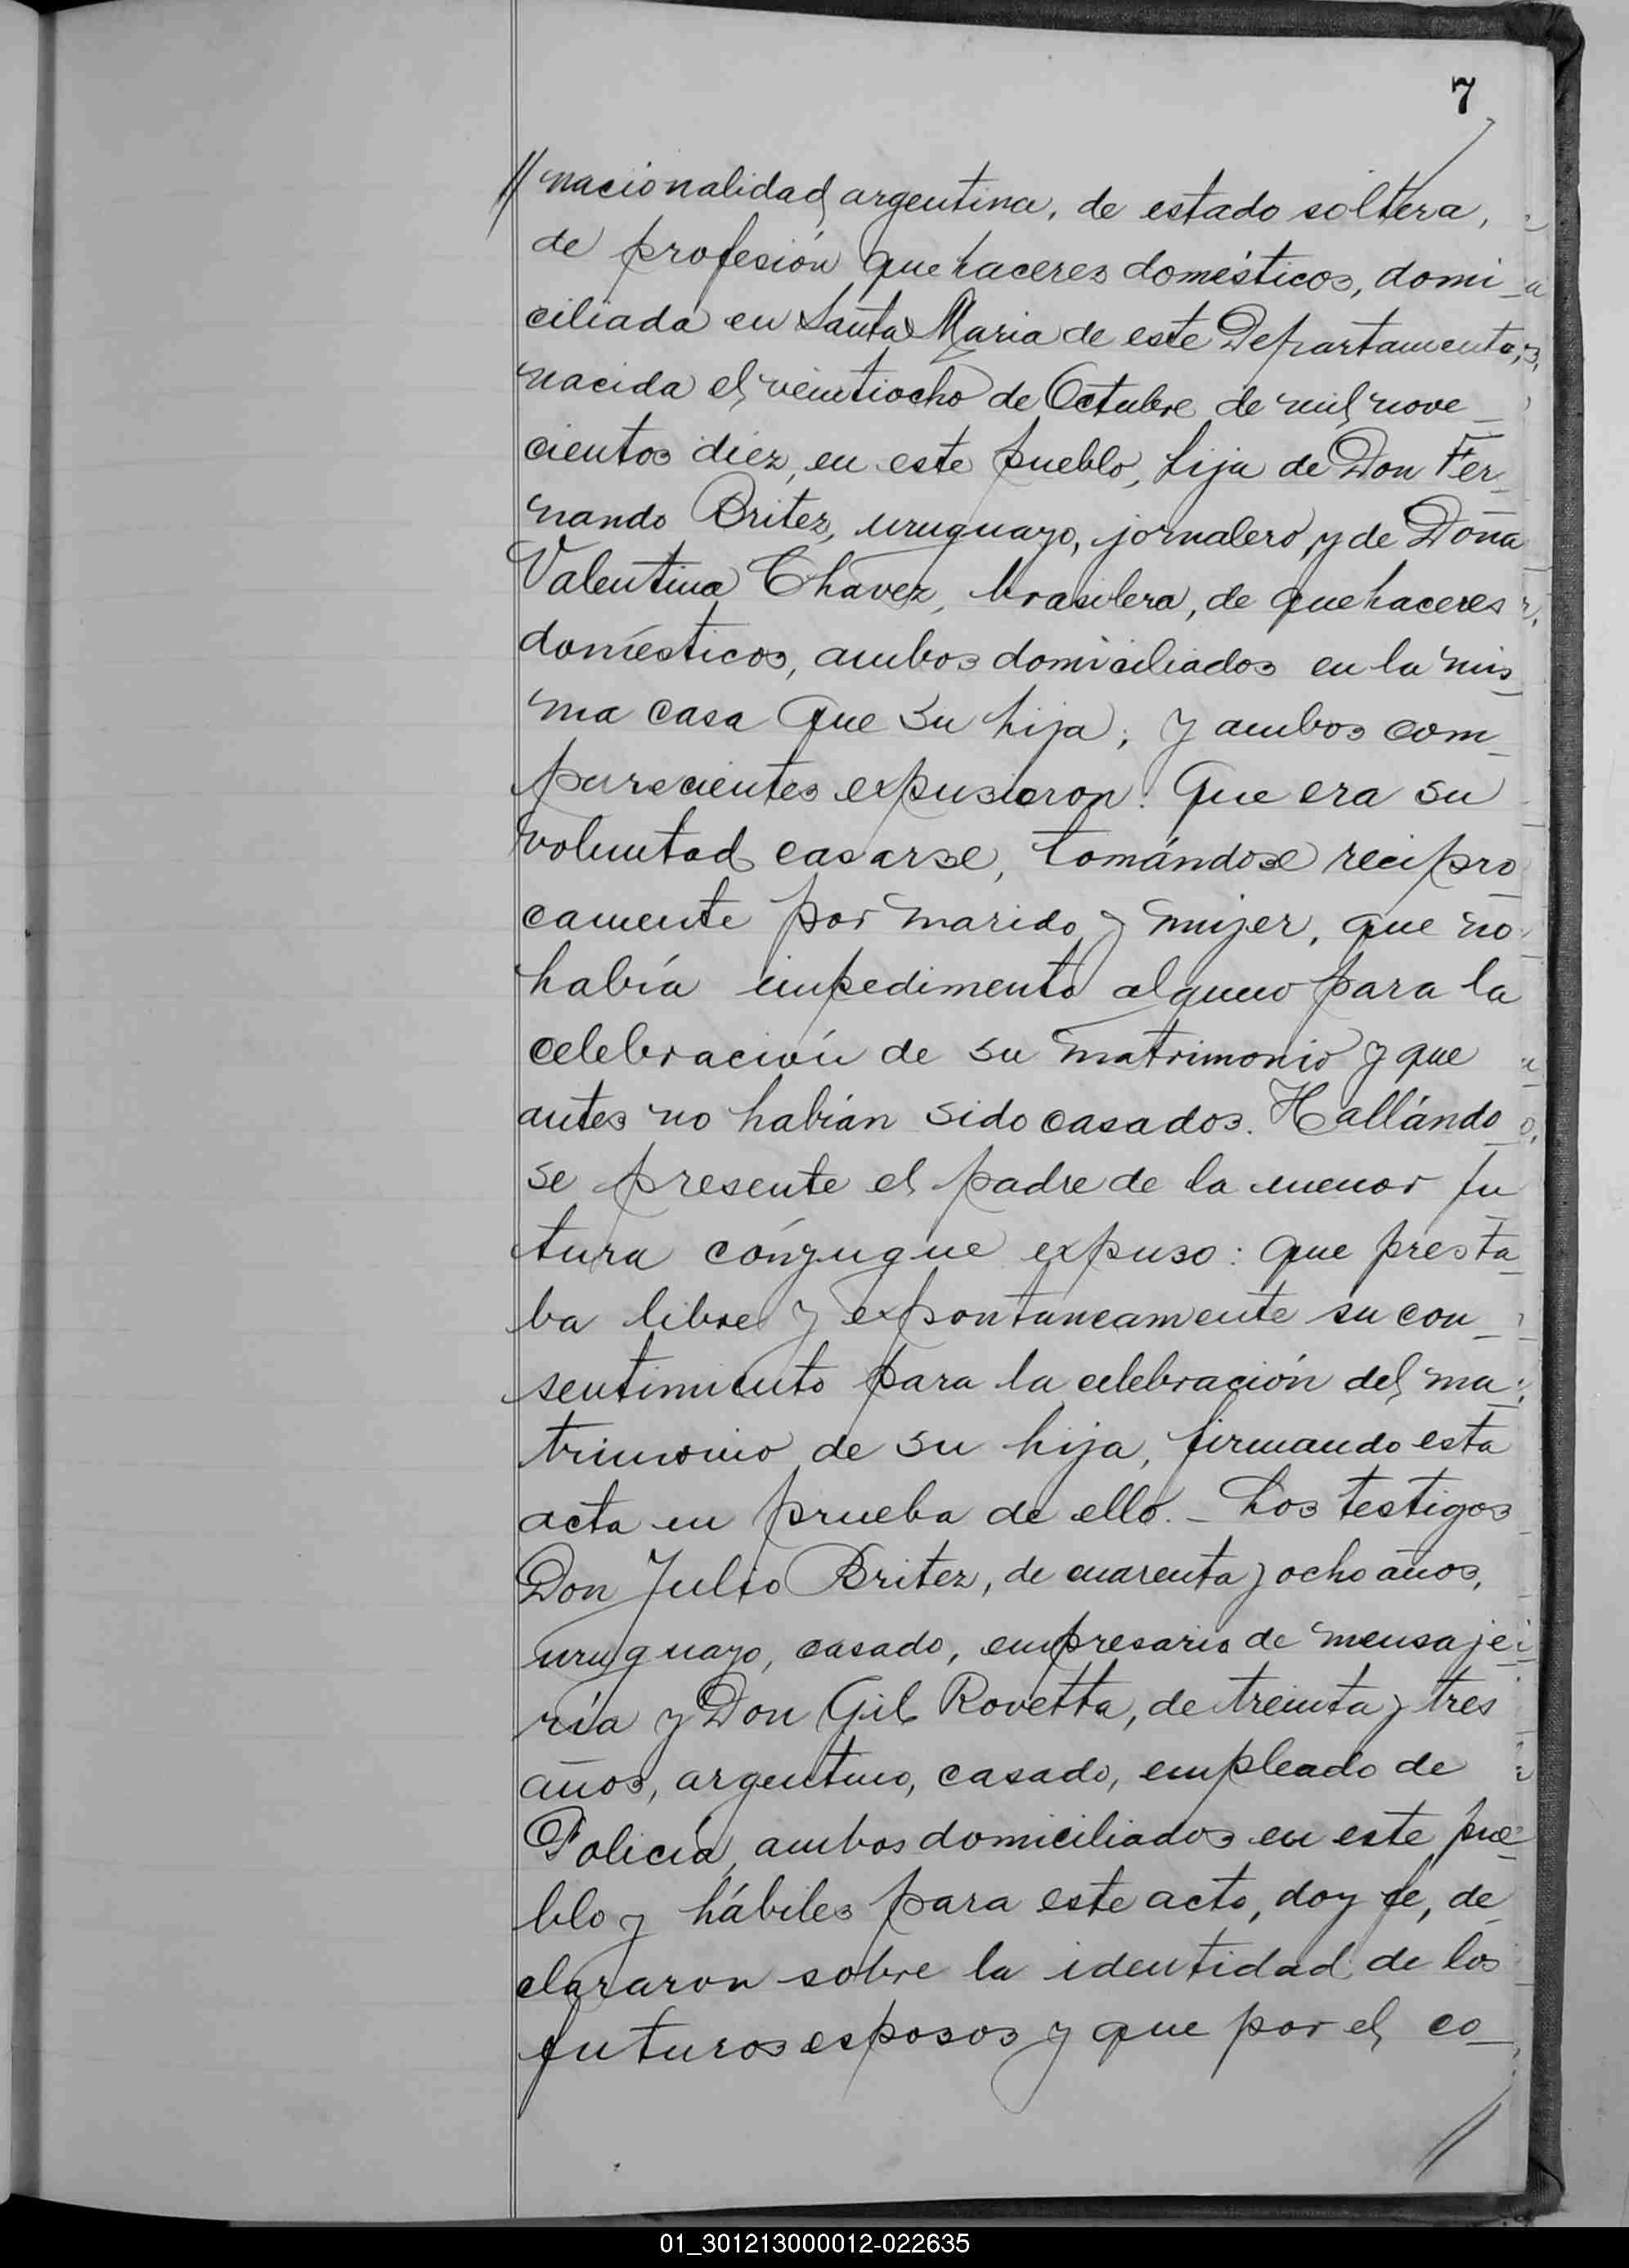 7
// nacionalidad argentina, de estado soltera,
de profesión quehaceres domésticos, domi_
ciliada en Santa Maria de este Departamento,
nacida el veintiocho de Octubre de mil nove_
cientos diez, en este pueblo, hija de Don Fer_
nando Britez, uruguayo, jornalero, y de Doña
Valentina Chavez, brasilera, de quehaceres
domésticos, ambos domiciliados en la mis_
ma casa que su hija; y ambos com_
parecientes expusieron: Que era su
voluntad casarse, tomándose recipro_
camente por marido y mujer, que no
había impedimento alguno para la
celebración de su matrimonio y que
antes no habían sido casados. Hallándo_
se presente el padre de la menor fu_
tura cónyugue expuso: que presta_
ba libre y expontaneamente su con_
sentimiento para la celebración del ma_
trimonio de su hija, firmando esta
acta en prueba de ello. _ Los testigos
Don Julio Britez, de cuarenta y ocho años,
uruguayo, casado, empresario de mensaje_
ría y Don Gil Rovetta, de treinta y tres
años, argentino, casado, empleado de
Policía, ambos domiciliados en este pue_
blo y hábiles para este acto, doy fe, de_
clararon sobre la identidad de los
futuros esposos y que por el co_
//
01_301213000012-022635